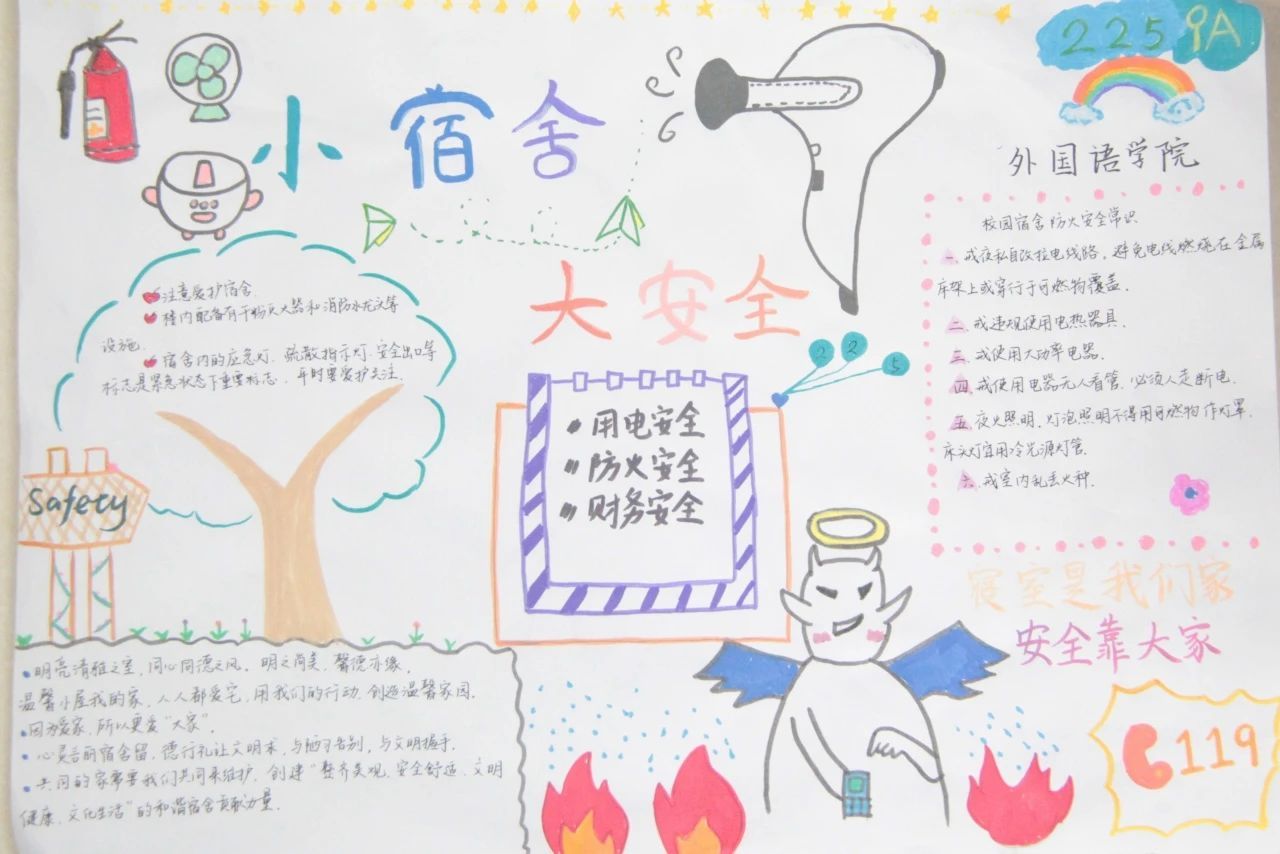 225 9A
小宿舍
大安全
外国语学院
校园宿舍防火安全常识
一、戒夜私自改拉电线路，避免电线燃烧在金属
床架上或穿行于可燃物覆盖.
二、戒违规使用电热器具.
三、戒使用大功率电器.
四、戒使用电器无人看管.必须人走断电.
五、夜火照明，灯泡照明不得用可燃物作灯罩.
床头灯宜用冷光源灯管.
六、戒室内乱丢火种.
注意爱护宿舍.
楼内配备有干粉灭火器和消防水龙头等
设施.
宿舍内的应急灯.疏散指示灯.安全出口等
标志是紧急状态下重要标志，平时要爱护关注.
2 2 5
用电安全
防火安全
财务安全
Safety
寝室是我们家
安全靠大家
119
明亮清雅之室，同心同德之风。明之尚美.馨德亦缘.
温馨小屋我的家，人人都爱它，用我们的行动.创造温馨家园.
因为爱家，所以更爱“大家”.
心灵言丽宿舍留，德行礼让文明来，与陋习告别，与文明握手.
共同的家需要我们共同来维护，创建“整齐美观，安全舒适，文明
健康，文化生活”的和谐宿舍贡献力量.